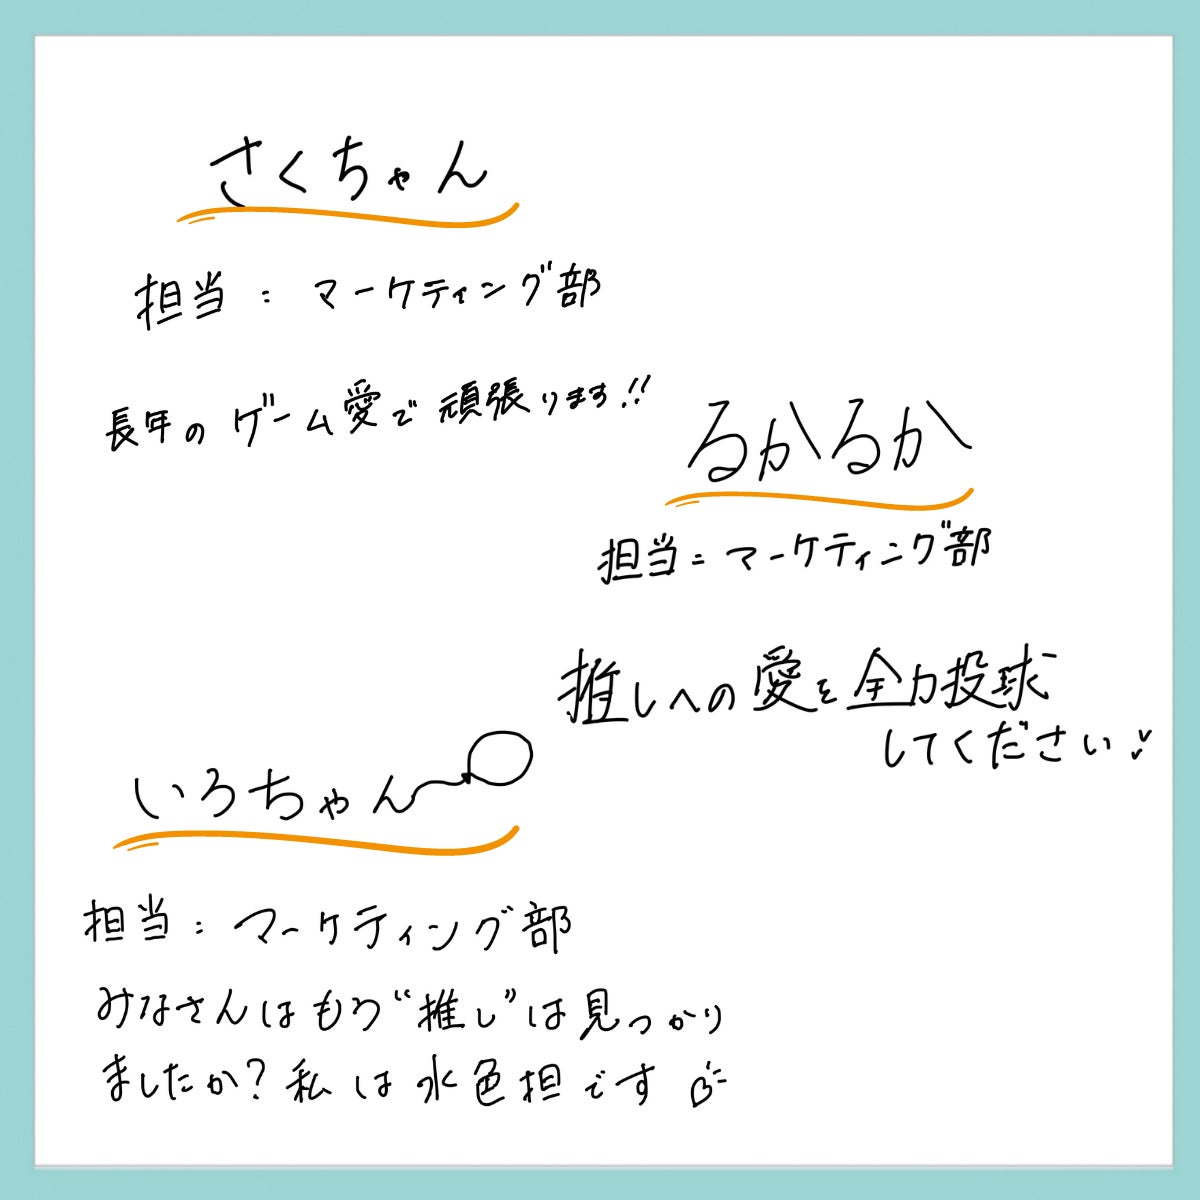 さくちゃん
担当：マーケティング部
長年のゲーム愛で頑張ります!!
るかるか
担当：マーケティング部
推しへの愛を全力投球
してください
いろちゃん
担当：マーケティング部
みなさんはもう“推し”は見つかり
ましたか？私は水色担です